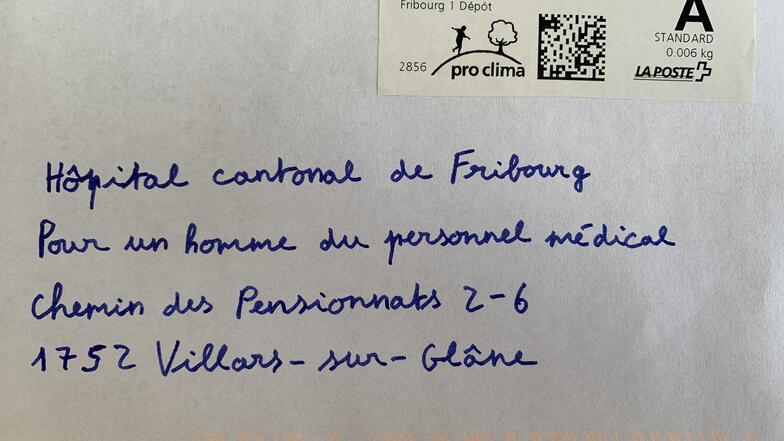 Fribourg 1 Dépôt
A
STANDARD
0.006 kg
2856 pro clima
LA POSTE
Hôpital cantonal de Fribourg
Pour un homme du personnel médical
Chemin des Pensionnats 2-6
1752 Villars-sur-Glâne